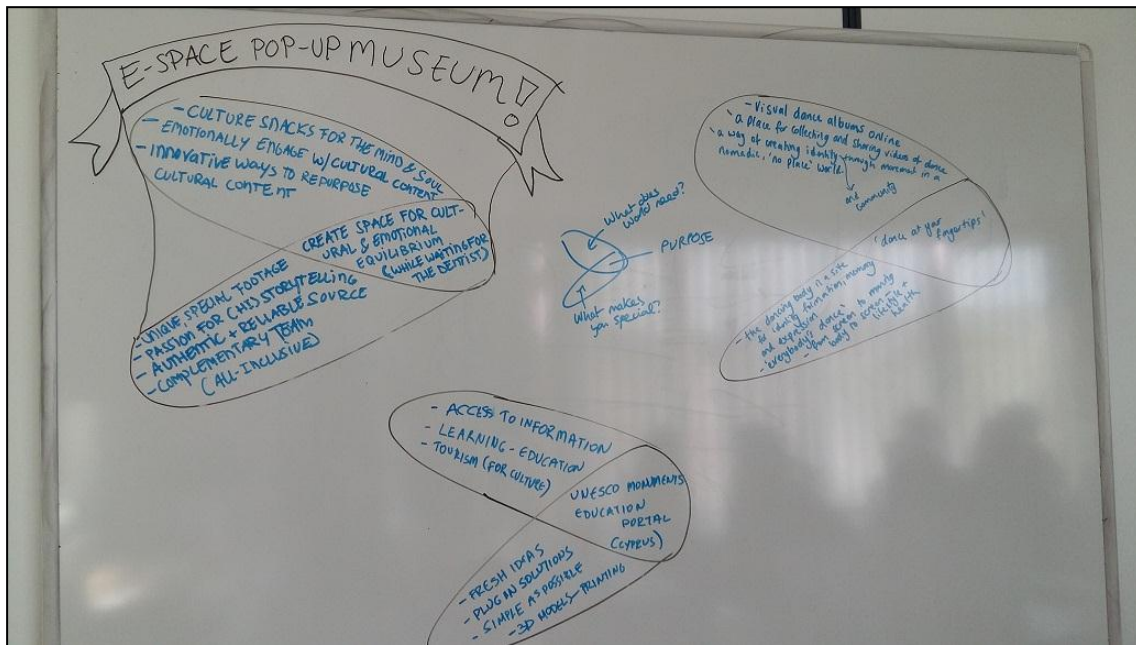 E-SPACE POP-UP MUSEUM!
- CULTURE SNACKS FOR THE MIND & SOUL
- EMOTIONALLY ENGAGE W/ CULTURAL CONTENT
- INNOVATIVE WAYS TO REPURPOSE
CULTURAL CONTENT
CREATE SPACE FOR CULT-
URAL & EMOTIONAL
EQUILIBRIUM
(WHILE WAITING FOR
THE DENTIST)
- UNIQUE, SPECIAL FOOTAGE
- PASSION FOR (HIS)STORYTELLING
- AUTHENTIC + RELIABLE SOURCE
- COMPLEMENTARY TEAM
(ALL-INCLUSIVE)
What does
world need?
PURPOSE
What makes
you special?
- Visual dance albums online
'a place for collecting and sharing videos of dance
'a way of creating identity through movement in a
nomadic, 'no place' world
and
community
'dance at your
fingertips'
- the dancing body is a site
for identity formation, memory
and expression
- 'everybody's dance' to moving
- from screen to
body to screen
lifestyle +
health
- ACCESS TO INFORMATION
- LEARNING - EDUCATION
- TOURISM (FOR CULTURE)
UNESCO MONUMENTS
EDUCATION
PORTAL
(CYPRUS)
- FRESH IDEAS
- PLUG IN SOLUTIONS
- SIMPLE AS POSSIBLE
- 3D MODELS - PRINTING